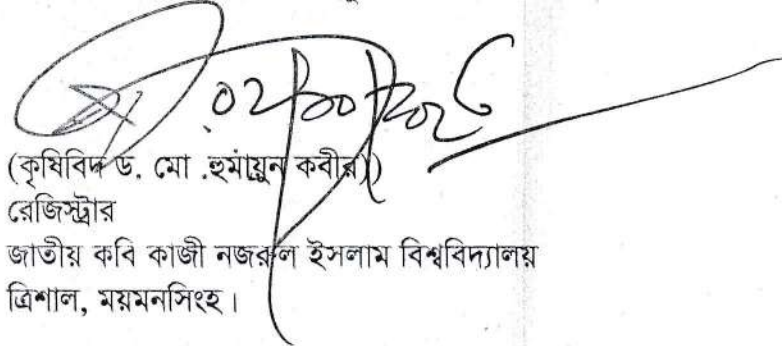 (কৃষিবিদ ড. মো .হুমায়ুন কবীর))
রেজিস্ট্রার
জাতীয় কবি কাজী নজরুল ইসলাম বিশ্ববিদ্যালয়
ত্রিশাল, ময়মনসিংহ।